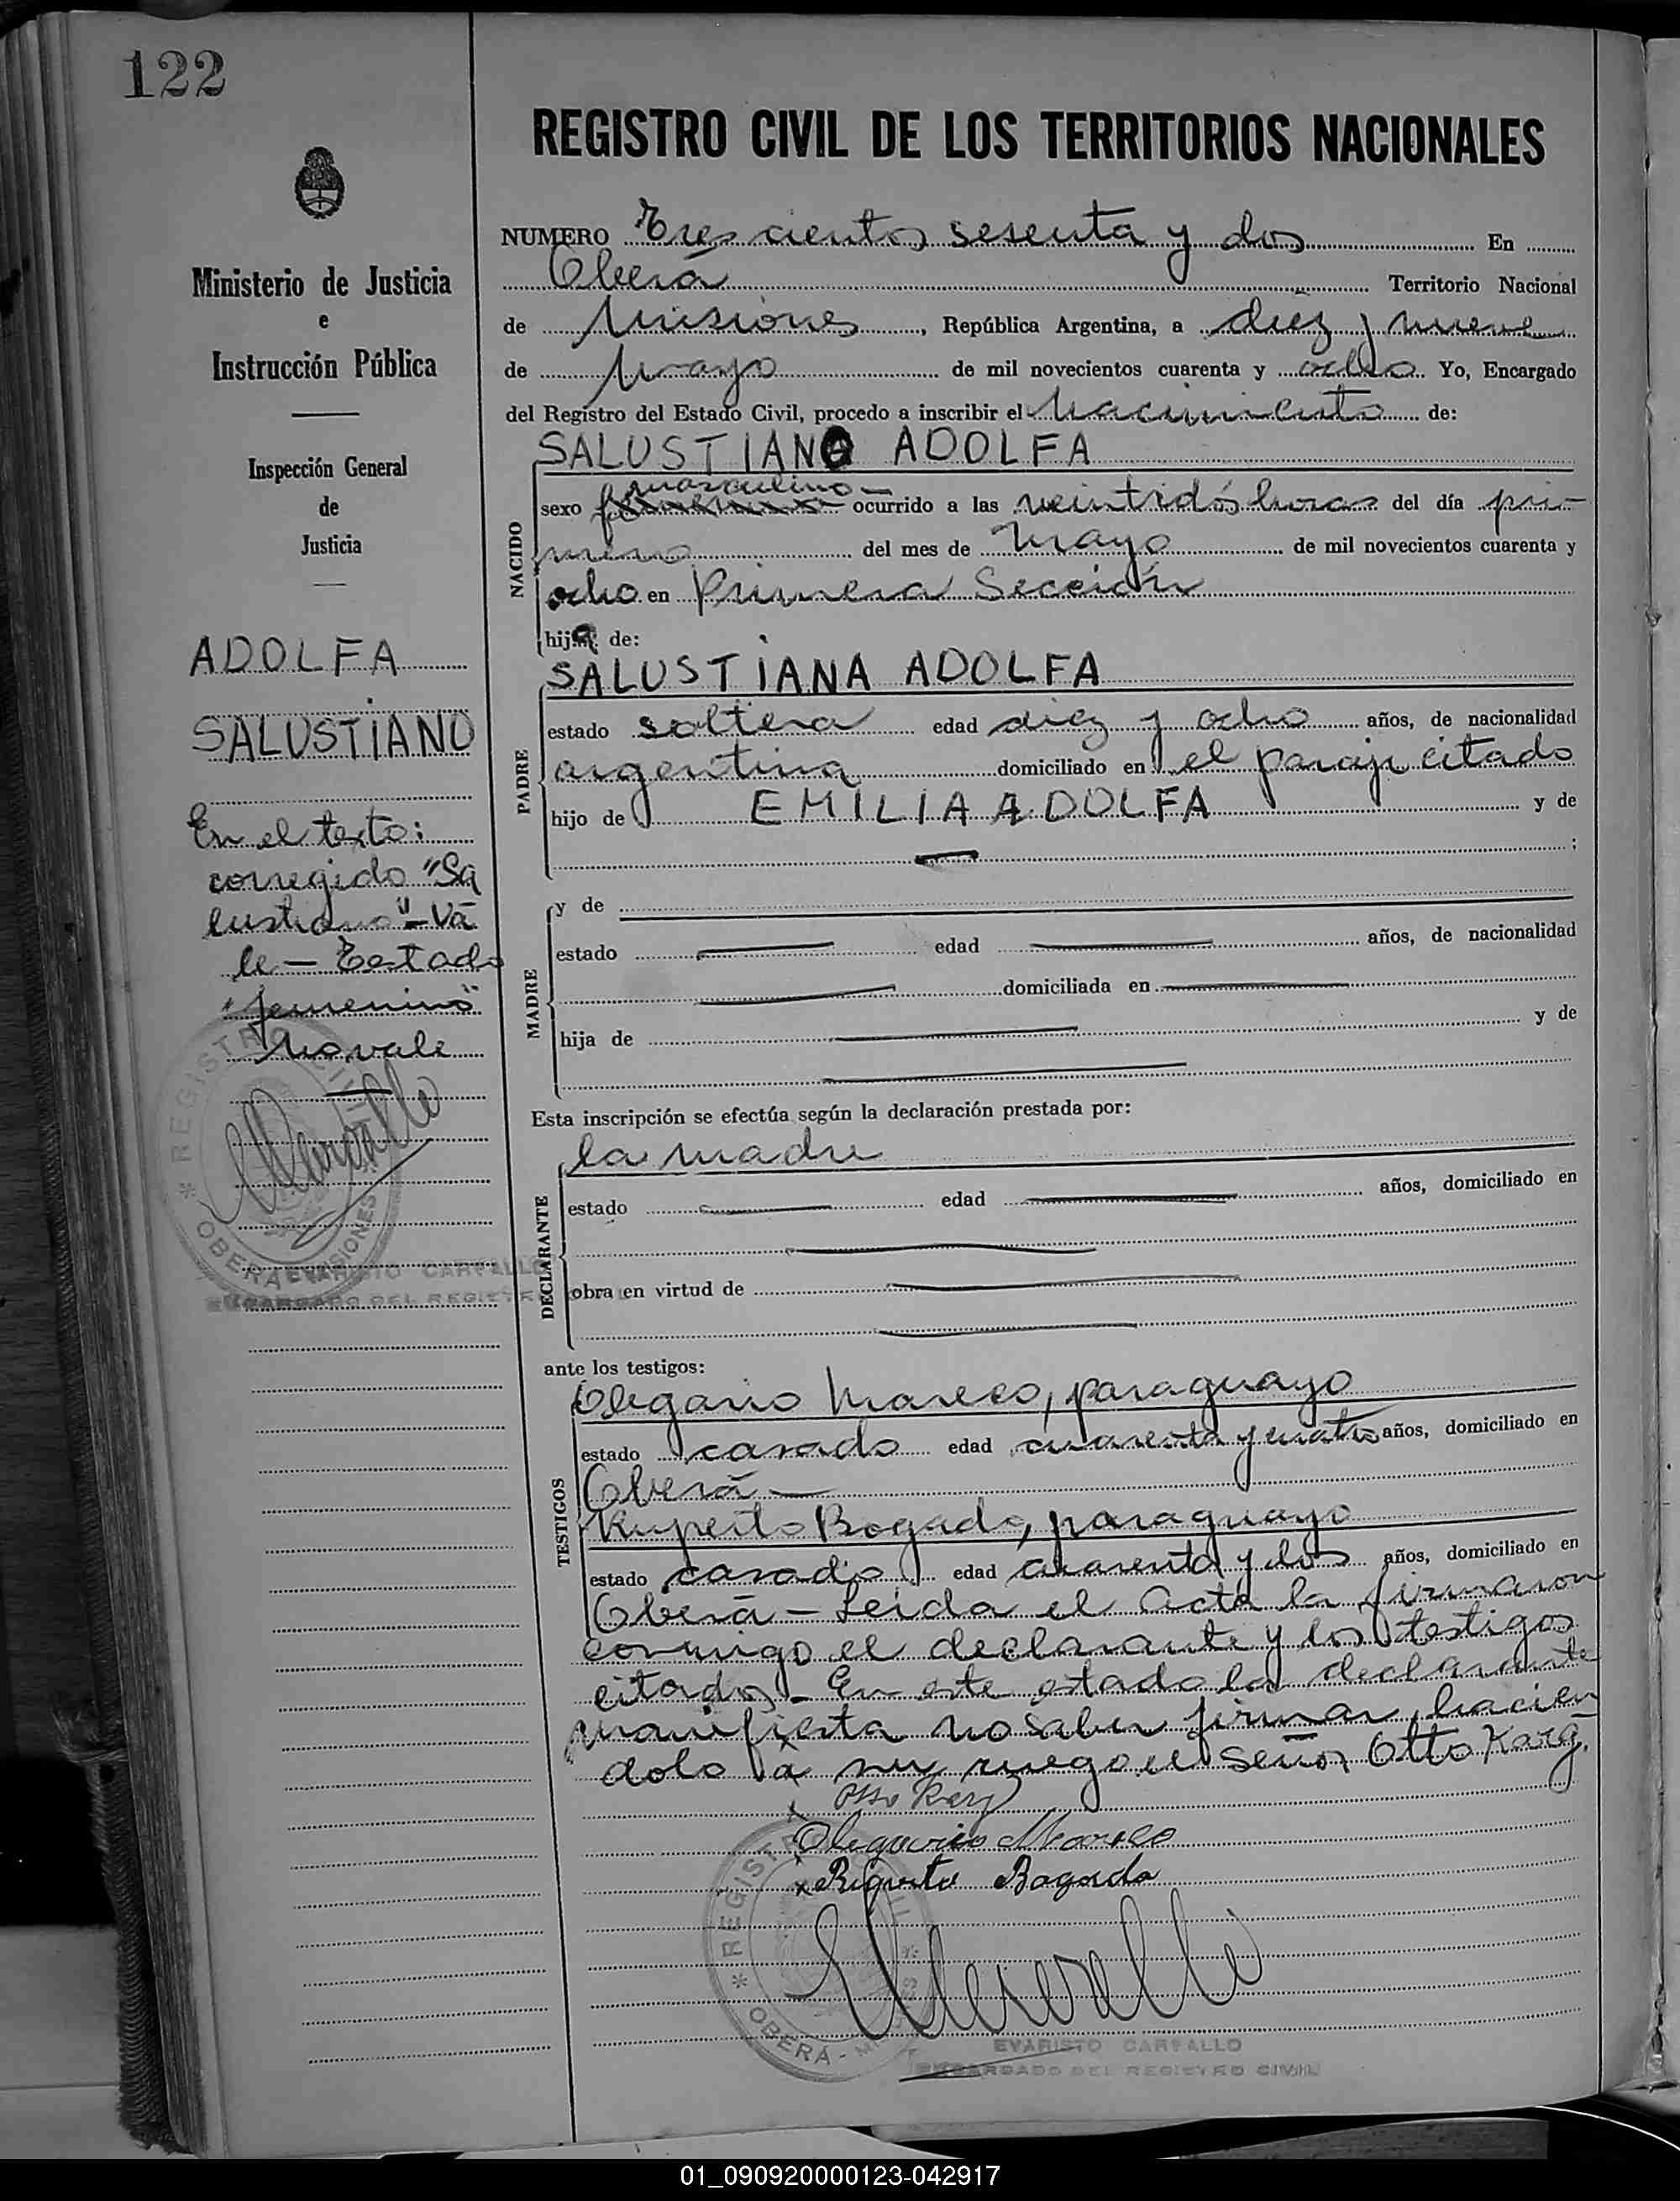 122
REGISTRO CIVIL DE LOS TERRITORIOS NACIONALES
Ministerio de Justicia
e
Instrucción Pública
Inspección General
de
Justicia
ADOLFA
SALUSTIANO
En el texto:
corregido "Sa
lustiano" - Va
le - Testado
"femenino"
No vale
REGISTRO CIVIL
* OBERA MISIONES
EVARISTO CARVALLO
ENCARGADO DEL REGISTR
NUMERO Trescientos sesenta y dos En
Oberá Territorio Nacional
de Misiones, República Argentina, a diez y nueve
de Mayo de mil novecientos cuarenta y ocho Yo, Encargado
del Registro del Estado Civil, procedo a inscribir el Nacimiento de:
SALUSTIANO ADOLFA
NACIDO
masculino
sexo femenino ocurrido a las veintidós horas del día pri-
mero del mes de Mayo de mil novecientos cuarenta y
ocho en Primera Sección
hijo de:
SALUSTIANA ADOLFA
PADRE
estado soltera edad diez y ocho años, de nacionalidad
argentina domiciliado en el paraje citado
hijo de EMILIA ADOLFA y de
;
MADRE
y de
estado edad años, de nacionalidad
domiciliada en
hija de y de
Esta inscripción se efectúa según la declaración prestada por:
la madre
DECLARANTE
estado edad años, domiciliado en
obra en virtud de
ante los testigos:
TESTIGOS
Olegario Mareco, paraguayo
estado casado edad cuarenta y cuatro años, domiciliado en
Oberá -
Ruperto Bogado, paraguayo
estado casado edad cuarenta y dos años, domiciliado en
Oberá - Leida el Acta la firmaron
conmigo el declarante y los testigos
citados - En este estado la declarante
manifiesta no saber firmar, hacien
dolo a su ruego el señor Otto Karg.
Otto Karg
Olegario Mareco
x Ruperto Bogado
REGISTRO CIVIL
* OBERA - MISIONES
EVARISTO CARVALLO
ENCARGADO DEL REGISTRO CIVIL
01_090920000123-042917